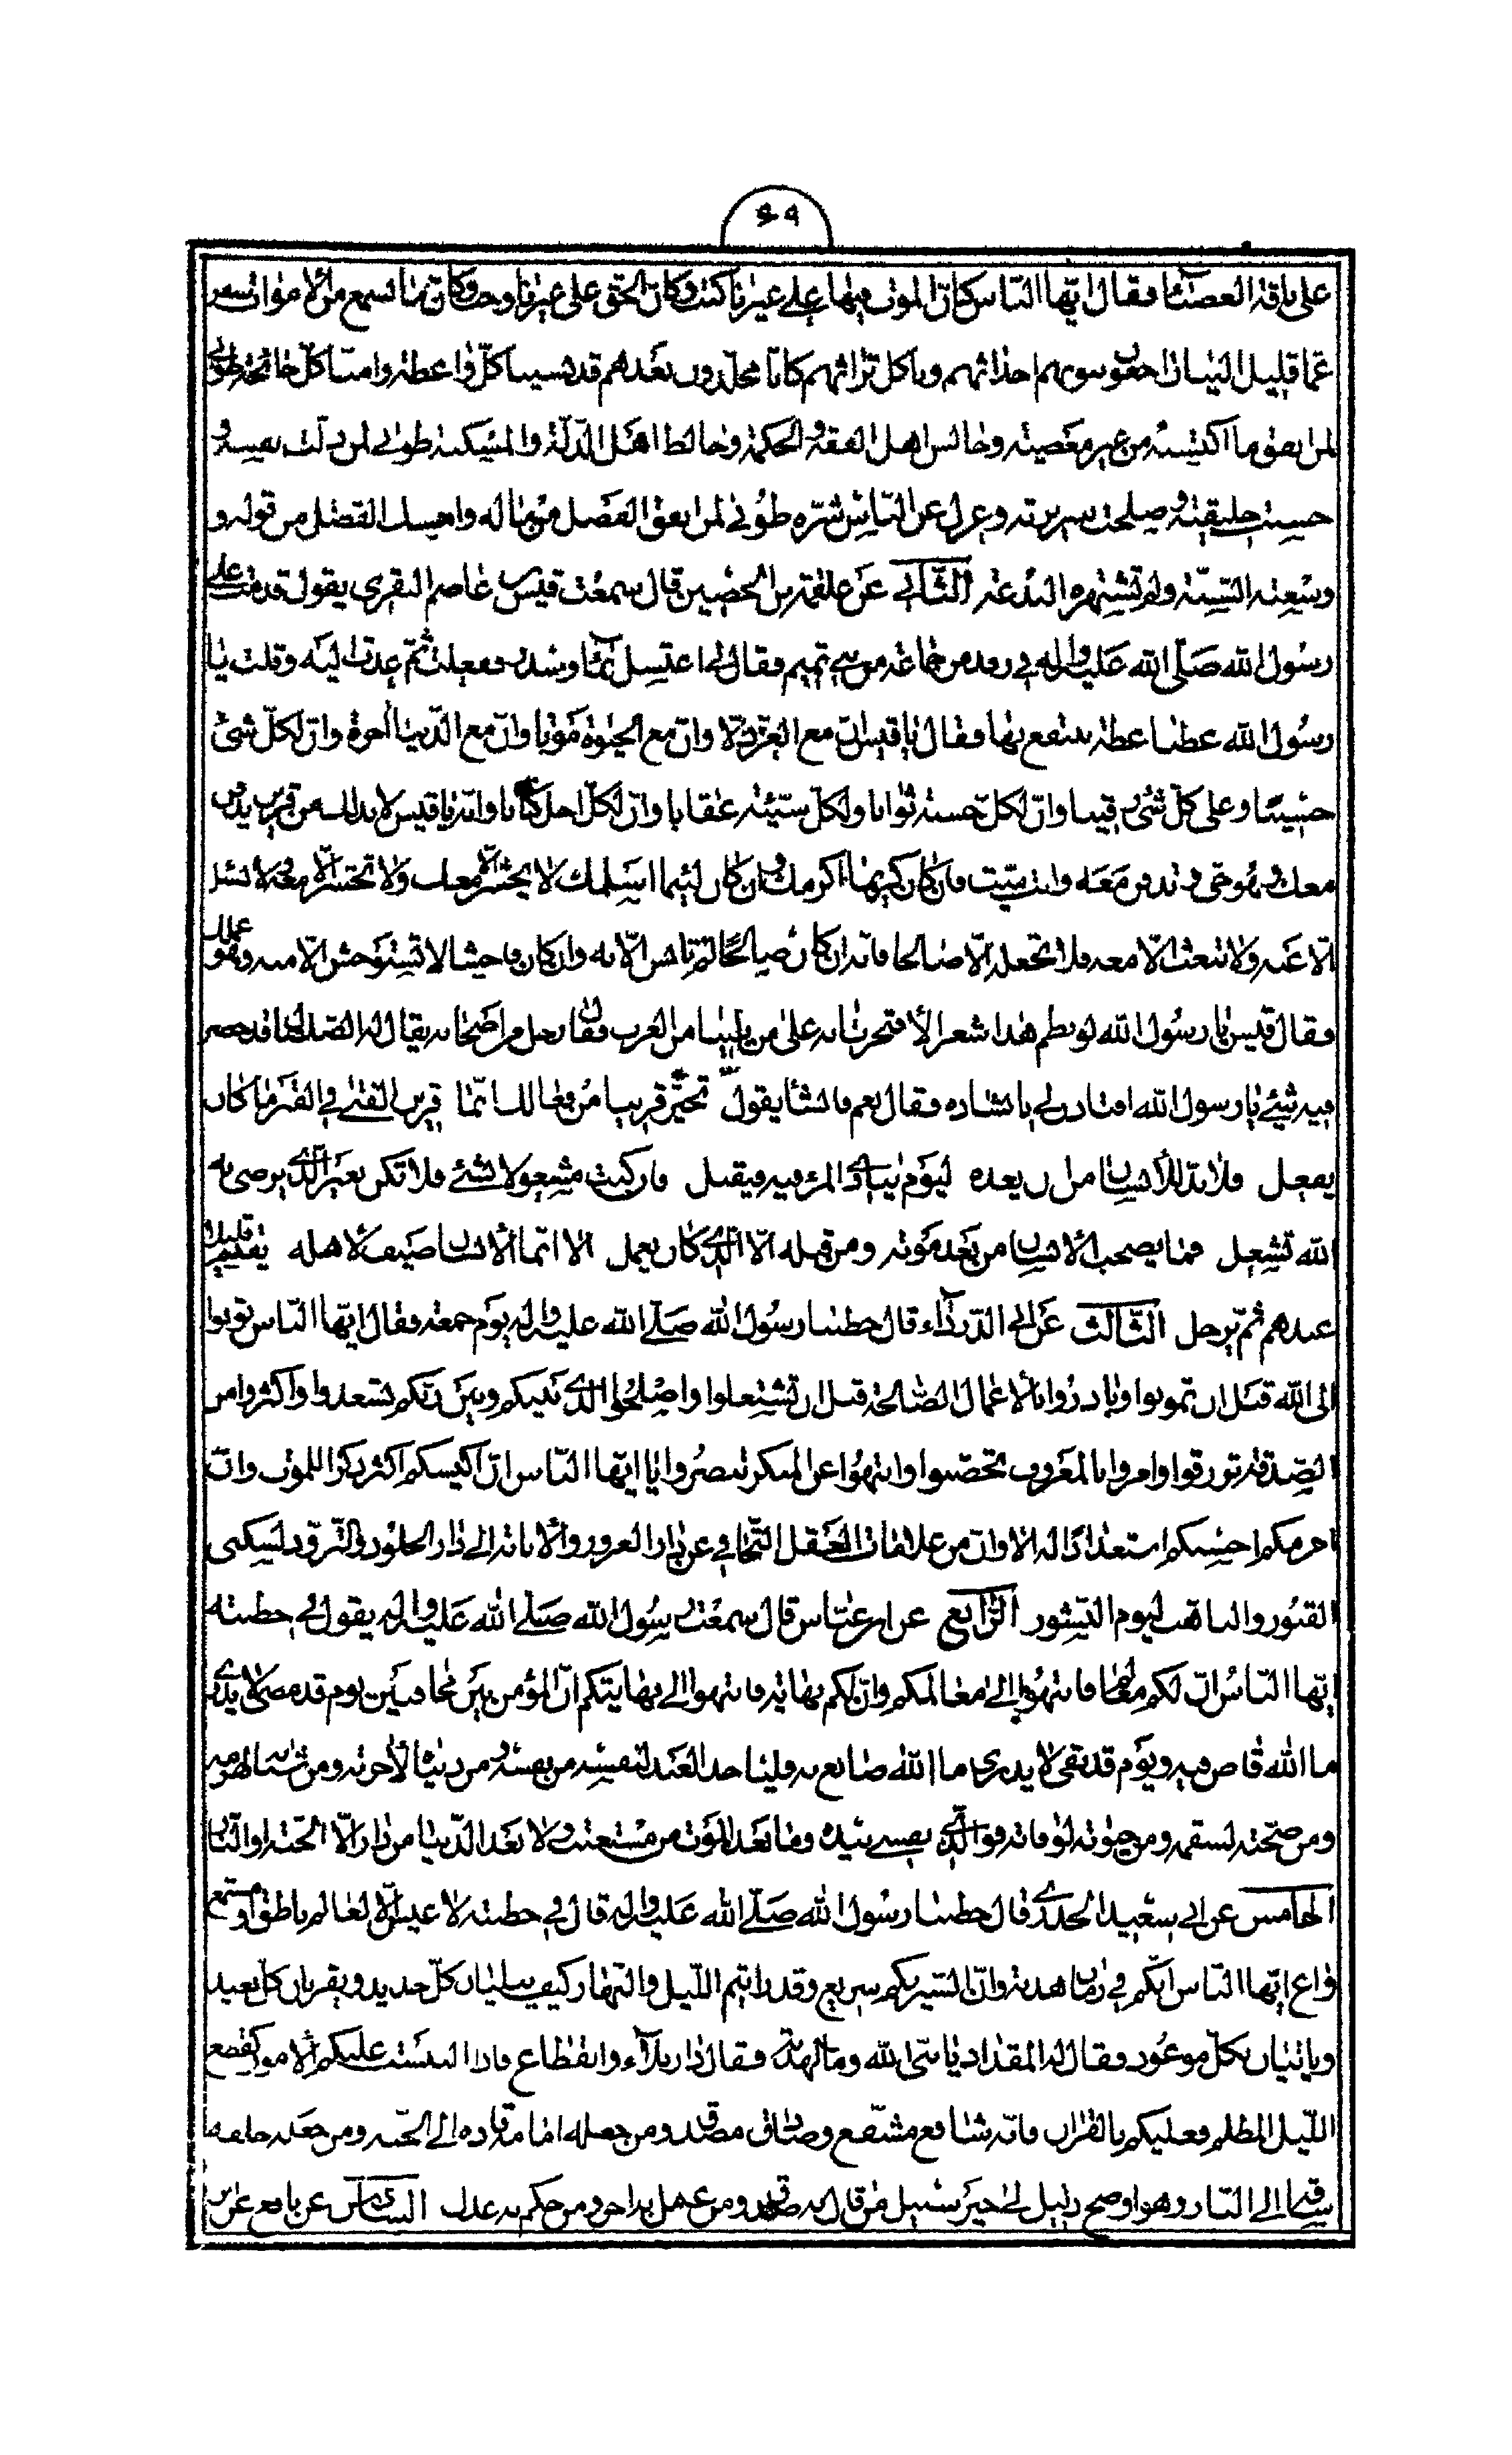 ٤٩
على ناقته العضباء فقال ايها الناس كان الموت فيها على غيرنا كتب وكان الحق على غيرنا وجب وكان ما نسمع من الاموات سفر
عما قليل الينا راجعون نبوئهم اجداثهم وناكل تراثهم كانا مخلدون بعدهم قد نسينا كل واعظة وامنا كل جائحة طوبى
لمن انفق ما اكتسبه من غير معصيته وجالس اهل الفقه والحكمة وخالط اهل الذلة والمسكنة طوبى لمن ذلت نفسه و
حسنت خليقته وصلحت سريرته وعزل عن الناس شره طوبى لمن انفق الفضل من ماله وامسك الفضل من قوله و
وسعته السنة ولم تشتهره البدعة الثاني عن علقمة بن الحضين قال سمعت قيس بن عاصم المنقري يقول قدمت على
رسول الله صلى الله عليه واله في وفد من جماعة من بني تميم فقال لي اغتسل بماء وسدر ففعلت ثم عدت اليه وقلت يا
رسول الله عظنا عظة ننتفع بها فقال يا قيس ان مع العز ذلا وان مع الحيوة موتا وان مع الدنيا اخرة وان لكل شئ
حسيبا وعلى كل شئ رقيبا وان لكل حسنة ثوابا ولكل سيئة عقابا وان لكل اجل كتابا وانه يا قيس لا بد لك من قرين يدفن
معك وهو حي وتدفن معه وانت ميت فان كان كريما اكرمك وان كان لئيما اسلمك لا يحشر الا معك ولا تحشر الا معه ولا تسئل
الا عنه ولا تبعث الا معه فلا تجعله الا صالحا فانه ان كان صالحا لم تانس الا به وان كان فاحشا لا تستوحش الا منه وهو عملك
فقال قيس يا رسول الله لو نظم هذا شعرا لافتخرنا به على من يلينا من العرب فقال رجل من اصحابه يقال له الصلصال قد حضر
فيه شئ يا رسول الله افتاذن لي بانشاده فقال نعم فانشا يقول تخير قرينا من فعالك انما قرين الفتى في القبر ما كان
يفعل فلا بد للانسان من ان يعده ليوم ينادى المرء فيه فيقبل فان كنت مشغولا بشئ فلا تكن بغير الذي يرضى به
الله تشغل فما يصحب الانسان من بعد موته ومن قبله الا الذي كان يعمل الا انما الانسان ضيف لاهله يقيم قليلا
عندهم ثم يرحل الثالث عن ابي الدرداء قال خطبنا رسول الله صلى الله عليه واله يوم جمعة فقال ايها الناس توبوا
الى الله قبل ان تموتوا وبادروا بالاعمال الصالحة قبل ان تشتغلوا واصلحوا الذي بينكم وبين ربكم تسعدوا واكثروا من
الصدقة ترزقوا وامروا بالمعروف تحصنوا وانتهوا عن المنكر تنصروا يا ايها الناس ان اكيسكم اكثركم ذكرا للموت وان
احزمكم احسنكم استعدادا له الا وان من علامات العقل التجافي عن دار الغرور والانابة الى دار الخلود والتزود لسكنى
القبور والتاهب ليوم النشور الرابع عن ابن عباس قال سمعت رسول الله صلى الله عليه واله يقول في خطبته
ايها الناس ان لكم معالم فانتهوا الى معالمكم وان لكم نهاية فانتهوا الى نهايتكم ان المؤمن بين مخافتين يوم قد مضى لا يدري
ما الله قاض فيه ويوم قد بقى لا يدري ما الله صانع به فلياخذ العبد لنفسه من نفسه ومن دنياه لاخرته ومن شبابه لهرمه
ومن صحته لسقمه ومن حيوته لوفاته فوالذي نفسي بيده وما بعد الموت من مستعتب ولا بعد الدنيا من دار الا الجنة او النار
الخامس عن ابي سعيد الخدري قال خطبنا رسول الله صلى الله عليه واله قال في خطبته لا عيش الا لعالم ناطق او مستمع
واع ايها الناس انكم في زمان هدنة وان السير بكم سريع وقد رايتم الليل والنهار كيف يبليان كل جديد ويقربان كل بعيد
وياتيان بكل موعود فقال له المقداد يا نبي الله وما الهدنة فقال دار بلاء وانقطاع فاذا التبست عليكم الامور كقطع
الليل المظلم فعليكم بالقران فانه شافع مشفع وصادق مصدق ومن جعله امامه قاده الى الجنة ومن جعله خلفه
ساقه الى النار وهو اوضح دليل الى خير سبيل من قال به صدق ومن عمل به اجر ومن حكم به عدل السادس عن نافع عن ابن